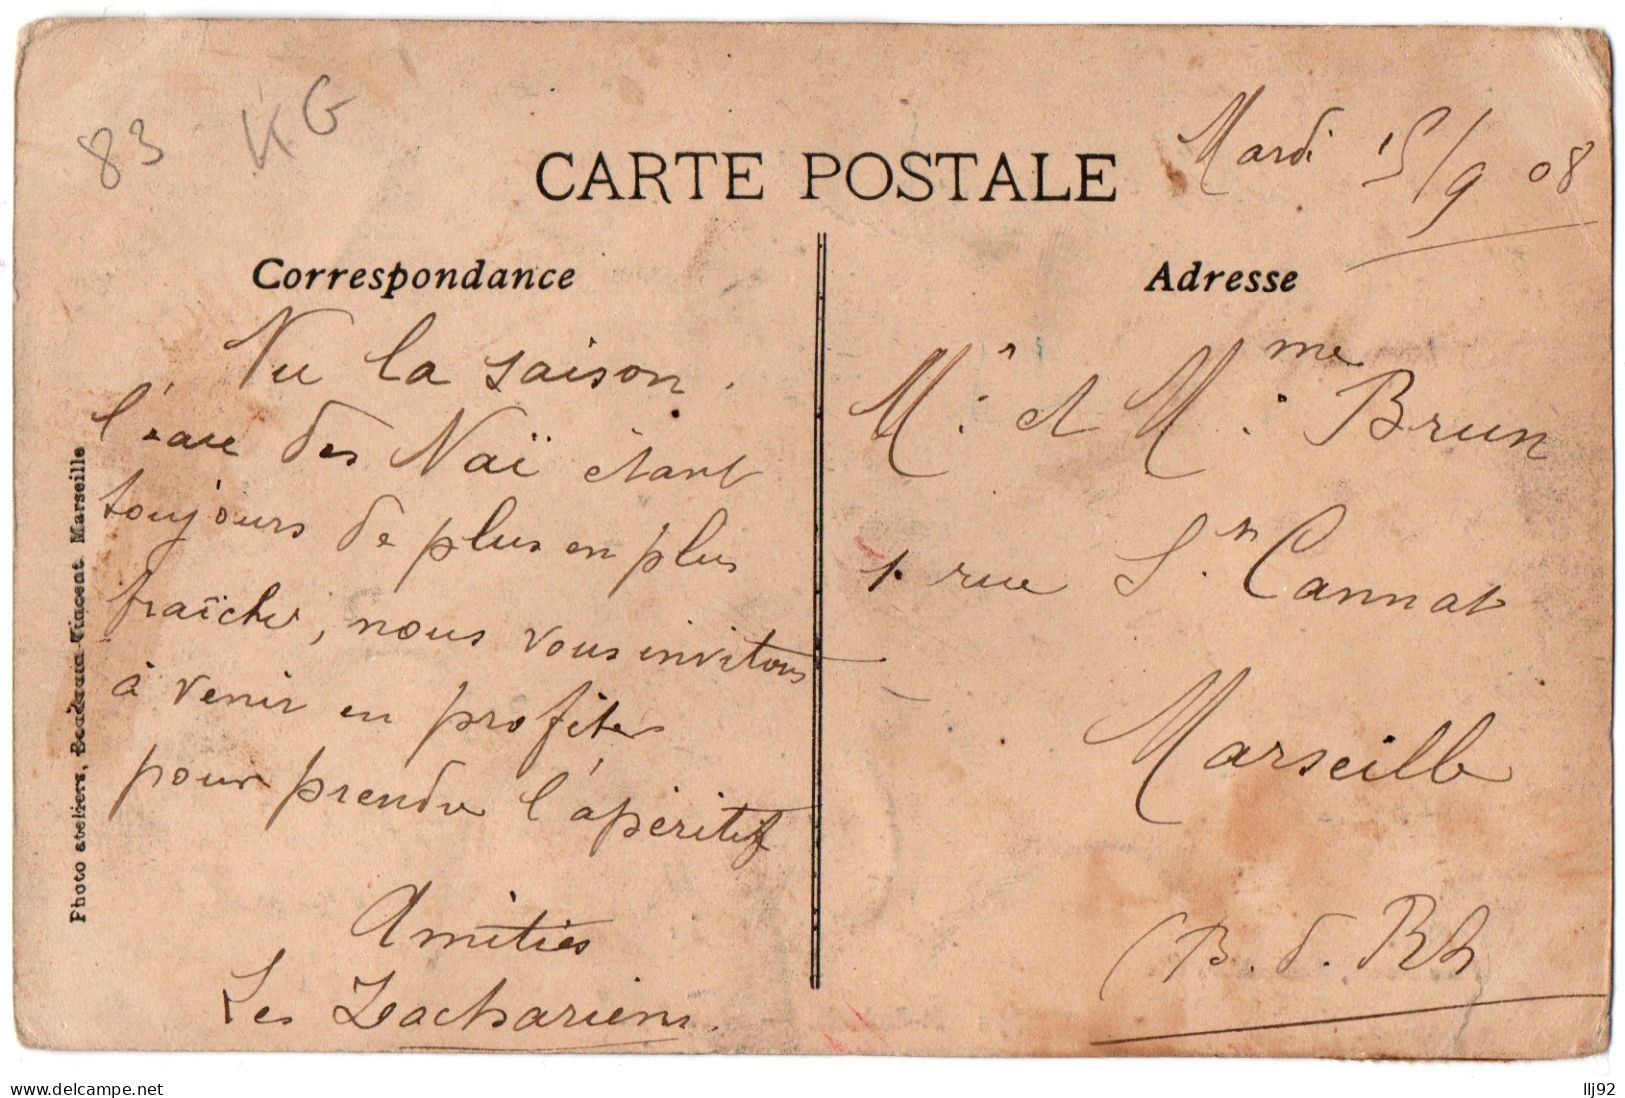 83 KG
CARTE POSTALE
Mardi 15/9 08
Correspondance
Vu la saison.
l'eau des Naï étant
toujours de plus en plus
fraîche, nous vous invitons
à venir en profiter
pour prendre l'apéritif
Amitiés
Les Zachariens.
Adresse
Mr. et Mme. Brun
1. rue St. Cannat
Marseille
(B. d. Rh
Photo ateliers, Beudeaux-Vincent Marseille
delcampe.net
llj92